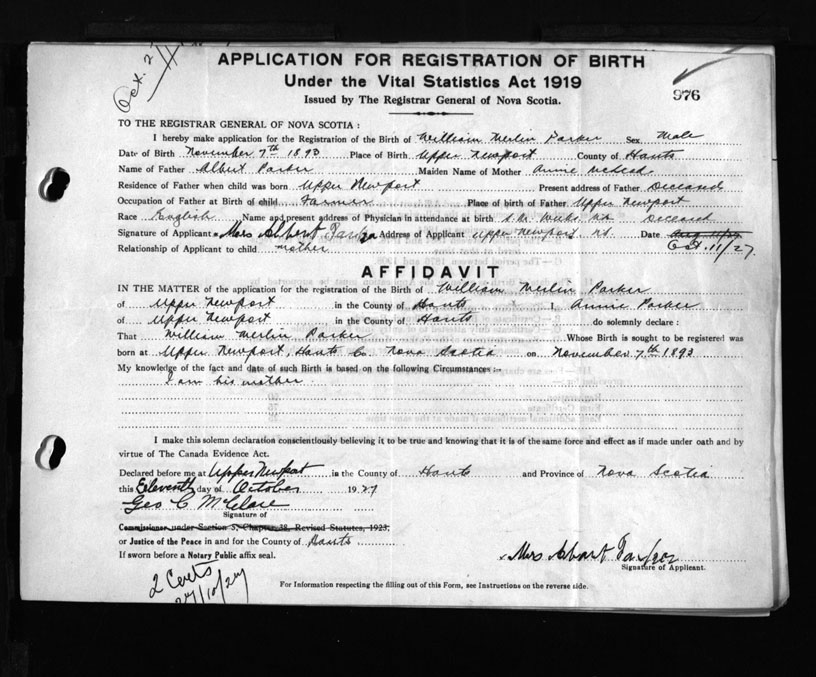 Oct. 2
APPLICATION FOR REGISTRATION OF BIRTH
Under the Vital Statistics Act 1919
976
Issued by The Registrar General of Nova Scotia.
TO THE REGISTRAR GENERAL OF NOVA SCOTIA :
I hereby make application for the Registration of the Birth of William Merlin Parker Sex Male
Date of Birth November 7th 1893 Place of Birth Upper Newport County of Hants
Name of Father Albert Parker Maiden Name of Mother Annie
Residence of Father when child was born Upper Newport Present address of Father Deceased
Occupation of Father at Birth of child Farmer Place of birth of Father Upper Newport
Race English Name and present address of Physician in attendance at birth Deceased
Signature of Applicant Mrs Albert Parker Address of Applicant Upper Newport, Date
Oct. 11/27.
Relationship of Applicant to child mother
AFFIDAVIT
IN THE MATTER of the application for the registration of the Birth of William Merlin Parker
of Upper Newport in the County of Hants I, Annie Parker
of Upper Newport in the County of Hants do solemnly declare :
That William Merlin Parker Whose Birth is sought to be registered was
born at Upper Newport, Hants Co. Nova Scotia on November 7th 1893
My knowledge of the fact and date of such Birth is based on the following Circumstances :-
I am his mother.
I make this solemn declaration conscientiously believing it to be true and knowing that it is of the same force and effect as if made under oath and by
virtue of The Canada Evidence Act.
Declared before me at Upper Newport in the County of Hants and Province of Nova Scotia
this Eleventh day of October 1927
Geo C McClare
Signature of
Commissioner under Section 3, Chapter 38, Revised Statutes, 1923,
or Justice of the Peace in and for the County of Hants
If sworn before a Notary Public affix seal.
Mrs Albert Parker
Signature of Applicant.
2 Certs
27/10/27
For Information respecting the filling out of this Form, see Instructions on the reverse side.